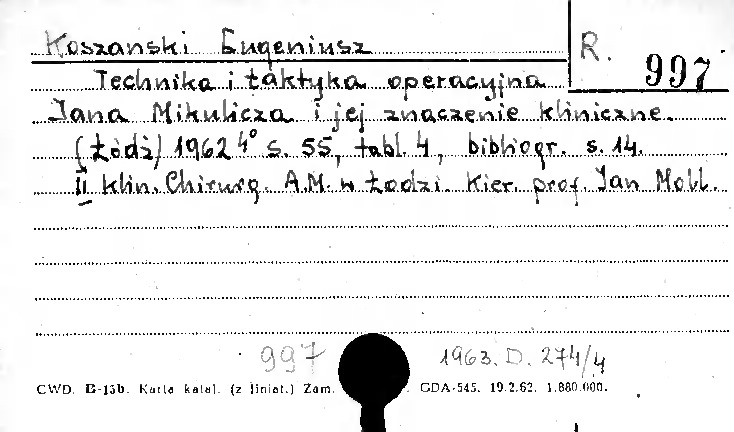 Koszański Eugeniusz R. 997
Technika i taktyka operacyjna
Jana Mikulicza i jej znaczenie kliniczne.
(Łódź) 1962 4° s. 55, tabl. 4, bibliogr. s. 14.
II Klin. Chirurg. A.M. w Łodzi. Kier. prof. Jan Moll.
997 1963. D. 274/4
CWD. B-15b. Karta katal. (z liniat.) Zam. GDA-545. 19.2.62. 1.880.000.